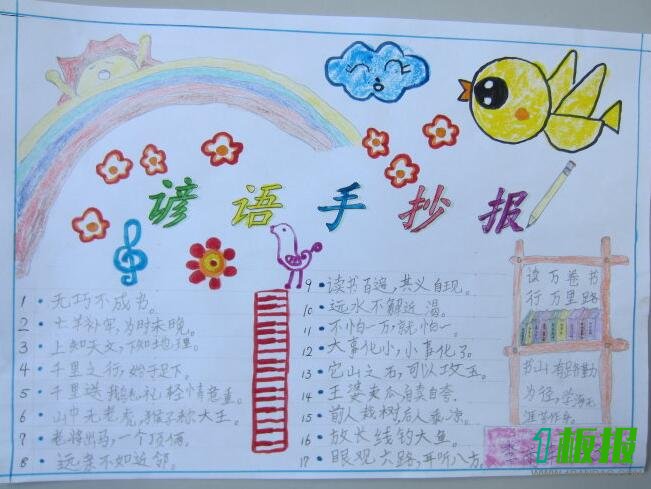 谚语手抄报
1 · 无巧不成书。
2 · 亡羊补牢，为时未晚。
3 · 上知天文，下知地理。
4 · 千里之行，始于足下。
5 · 千里送鹅毛，礼轻情意重。
6 · 山中无老虎，猴子称大王。
7 · 老将出马，一个顶俩。
8 · 远亲不如近邻。
9 · 读书百遍，其义自现。
10 · 远水不解近渴。
11 · 不怕一万，就怕一。
12 · 大事化小，小事化了。
13 · 它山之石，可以攻玉。
14 · 王婆卖瓜，自卖自夸。
15 · 前人栽树，后人乘凉。
16 · 放长线钓大鱼。
17 · 眼观六路，耳听八方。
读万卷书
行万里路
书山有路勤
为径，学海无
涯苦作舟。
1板报